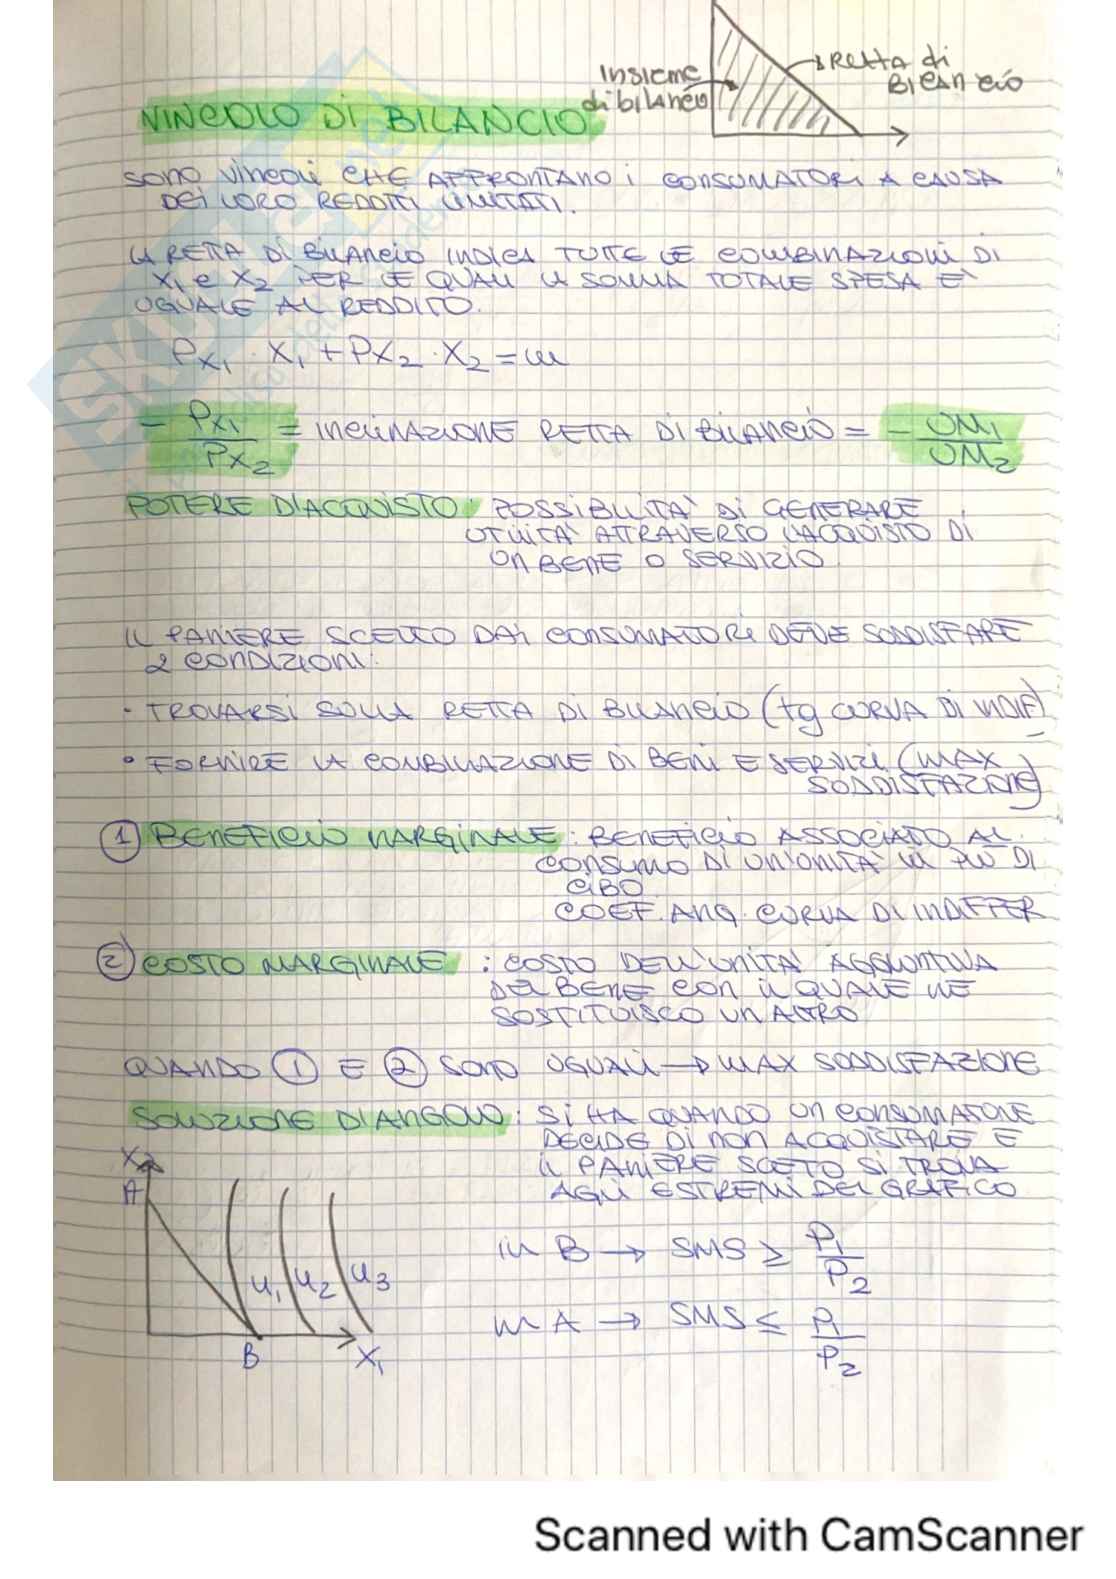 insieme
di bilancio
retta di
bilancio
VINCOLO DI BILANCIO
SONO VINCOLI CHE AFFRONTANO i CONSUMATORI A CAUSA
DEI LORO REDDITI LIMITATI.
LA RETTA DI BILANCIO INDICA TUTTE LE COMBINAZIONI DI
X₁ e X₂ PER LE QUALI LA SOMMA TOTALE SPESA E'
UGUALE AL REDDITO.
Px₁ · X₁ + Px₂ · X₂ = m
- Px₁/Px₂ = INCLINAZIONE RETTA DI BILANCIO = - UM₁/UM₂
POTERE D'ACQUISTO: POSSIBILITA' DI GENERARE
UTILITA' ATTRAVERSO L'ACQUISTO DI
UN BENE O SERVIZIO
IL PANIERE SCELTO DAI CONSUMATORI DEVE SODDISFARE
2 CONDIZIONI:
· TROVARSI SULLA RETTA DI BILANCIO (tg CURVA DI INDIF)
• FORNIRE LA COMBINAZIONE DI BENI E SERVIZI (MAX
SODDISFAZIONE)
① BENEFICIO MARGINALE: BENEFICIO ASSOCIATO AL
CONSUMO DI UN'UNITA' IN PIU' DI
CIBO
COEF. ANG. CURVA DI INDIFFER
② COSTO MARGINALE : COSTO DELL'UNITA' AGGIUNTIVA
DEL BENE CON IL QUALE NE
SOSTITUISCO UN ALTRO
QUANDO ① E ② SONO UGUALI → MAX SODDISFAZIONE
SOLUZIONE D'ANGOLO: SI HA QUANDO UN CONSUMATORE
DECIDE DI NON ACQUISTARE E
IL PANIERE SCELTO SI TROVA
AGLI ESTREMI DEL GRAFICO
X₂
A
U₁ U₂ U₃
B X₁
in B → SMS ≥ P₁/P₂
in A → SMS ≤ P₁/P₂
Scanned with CamScanner